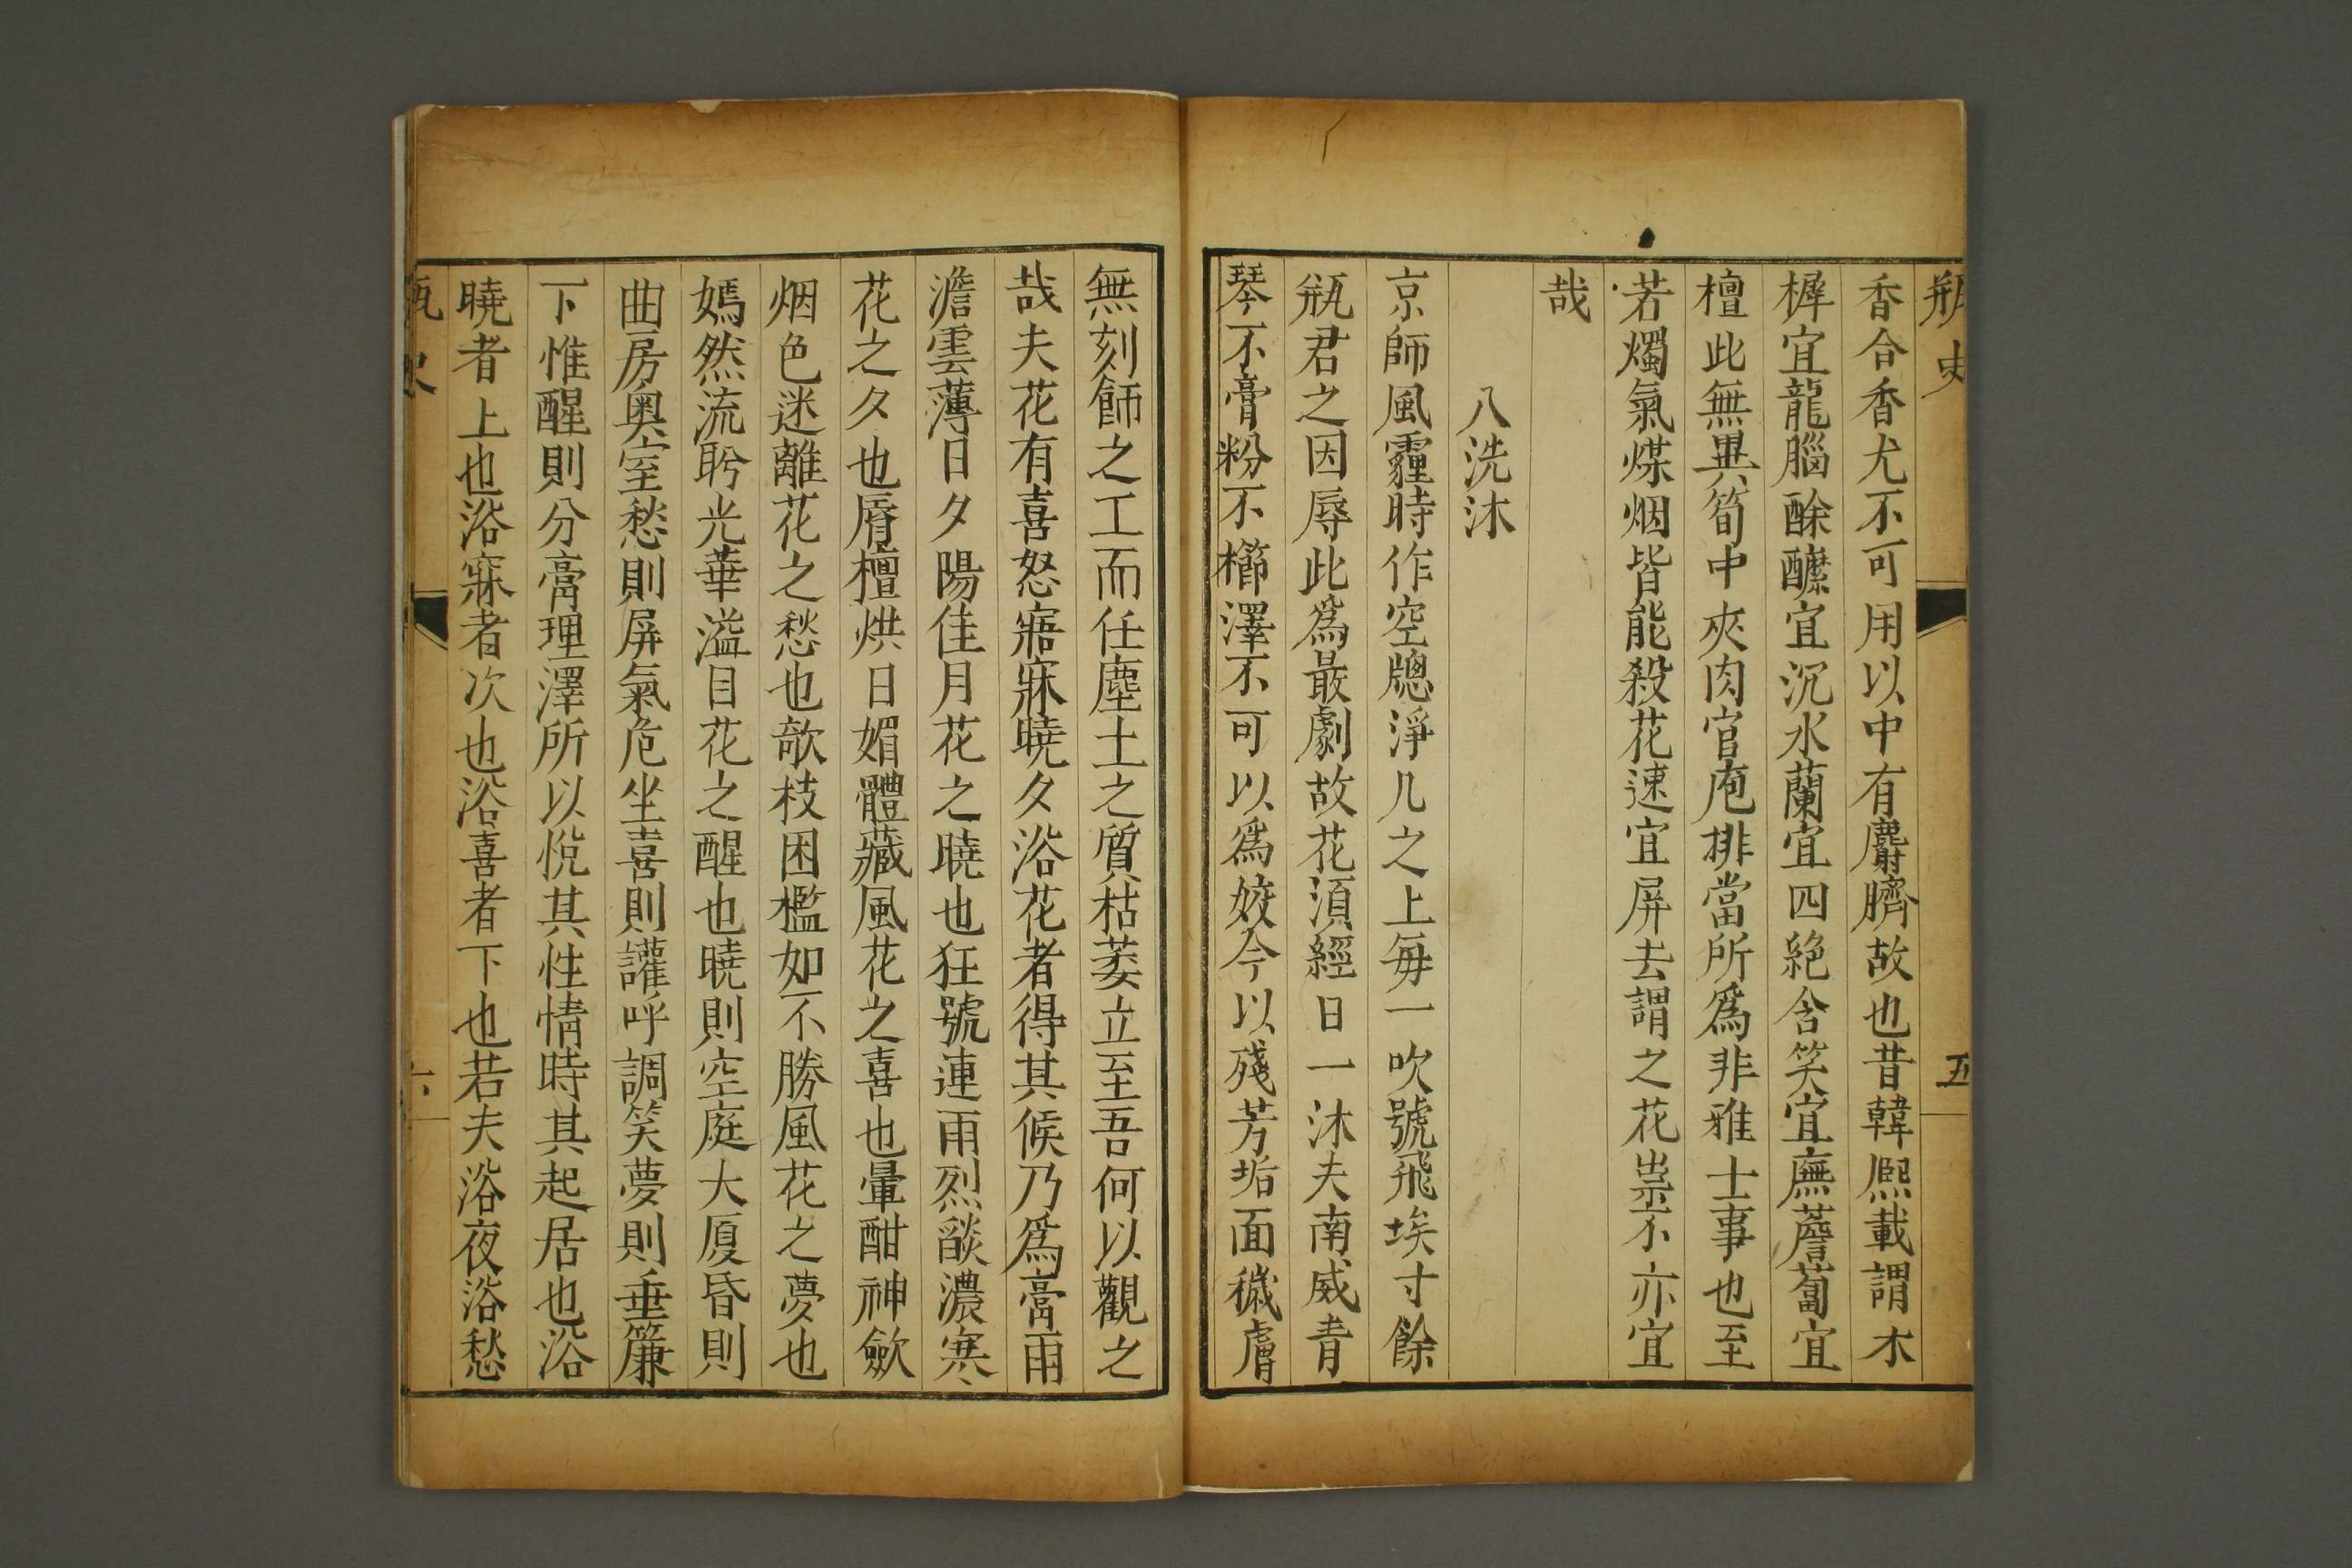 瓶史 五
香合香尤不可用以中有麝臍故也昔韓熈載謂木
樨宜龍腦酴醿宜沉水蘭宜四絶含笑宜麝薝蔔宜
檀此無異筍中夾肉官庖排當所爲非雅士事也至
若燭氣煤烟皆能殺花速宜屏去謂之花祟不亦宜
哉
八洗沐
京師風霾時作空牕淨几之上每一吹號飛埃寸餘
瓶君之困辱此爲最劇故花湏經日一沐夫南威青
琴不膏粉不櫛澤不可以爲姣今以殘芳垢面穢膚
無刻餙之工而任塵土之質枯萎立至吾何以觀之
哉夫花有喜怒寤寐曉夕浴花者得其候乃爲膏雨
澹雲薄日夕陽佳月花之曉也狂號連雨烈燄濃寒
花之夕也脣檀烘日媚體藏風花之喜也暈酣神歛
烟色迷離花之愁也欹枝困檻如不勝風花之夢也
嫣然流盻光華溢目花之醒也曉則空庭大廈昏則
曲房奥室愁則屏氣危坐喜則讙呼調笑夢則垂簾
下惟醒則分膏理澤所以悅其性情時其起居也浴
曉者上也浴寐者次也浴喜者下也若夫浴夜浴愁
瓶史 六